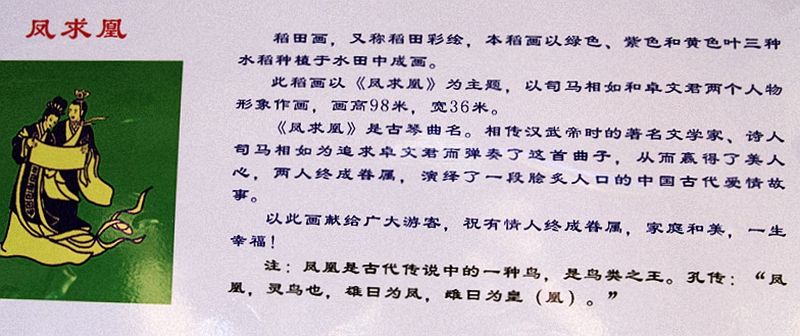 凤求凰
稻田画，又称稻田彩绘，本稻画以绿色、紫色和黄色叶三种
水稻种植于水田中成画。
此稻画以《凤求凰》为主题，以司马相如和卓文君两个人物
形象作画，画高98米，宽36米。
《凤求凰》是古琴曲名。相传汉武帝时的著名文学家、诗人
司马相如为追求卓文君而弹奏了这首曲子，从而赢得了美人
心，两人终成眷属，演绎了一段脍炙人口的中国古代爱情故
事。
以此画献给广大游客，祝有情人终成眷属，家庭和美，一生
幸福！
注：凤凰是古代传说中的一种鸟，是鸟类之王。孔传：“凤
凰，灵鸟也，雄曰为凤，雌曰为皇（凰）。”